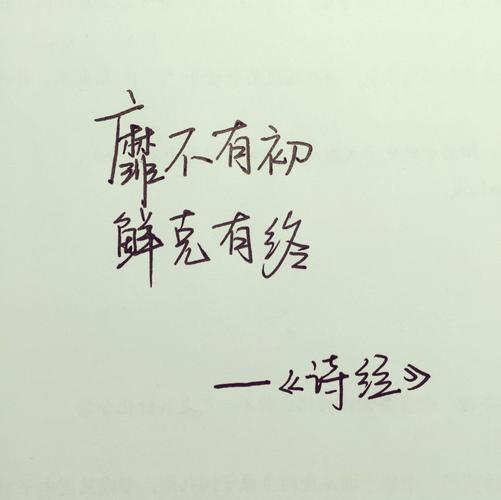 靡不有初
鲜克有终
—《诗经》